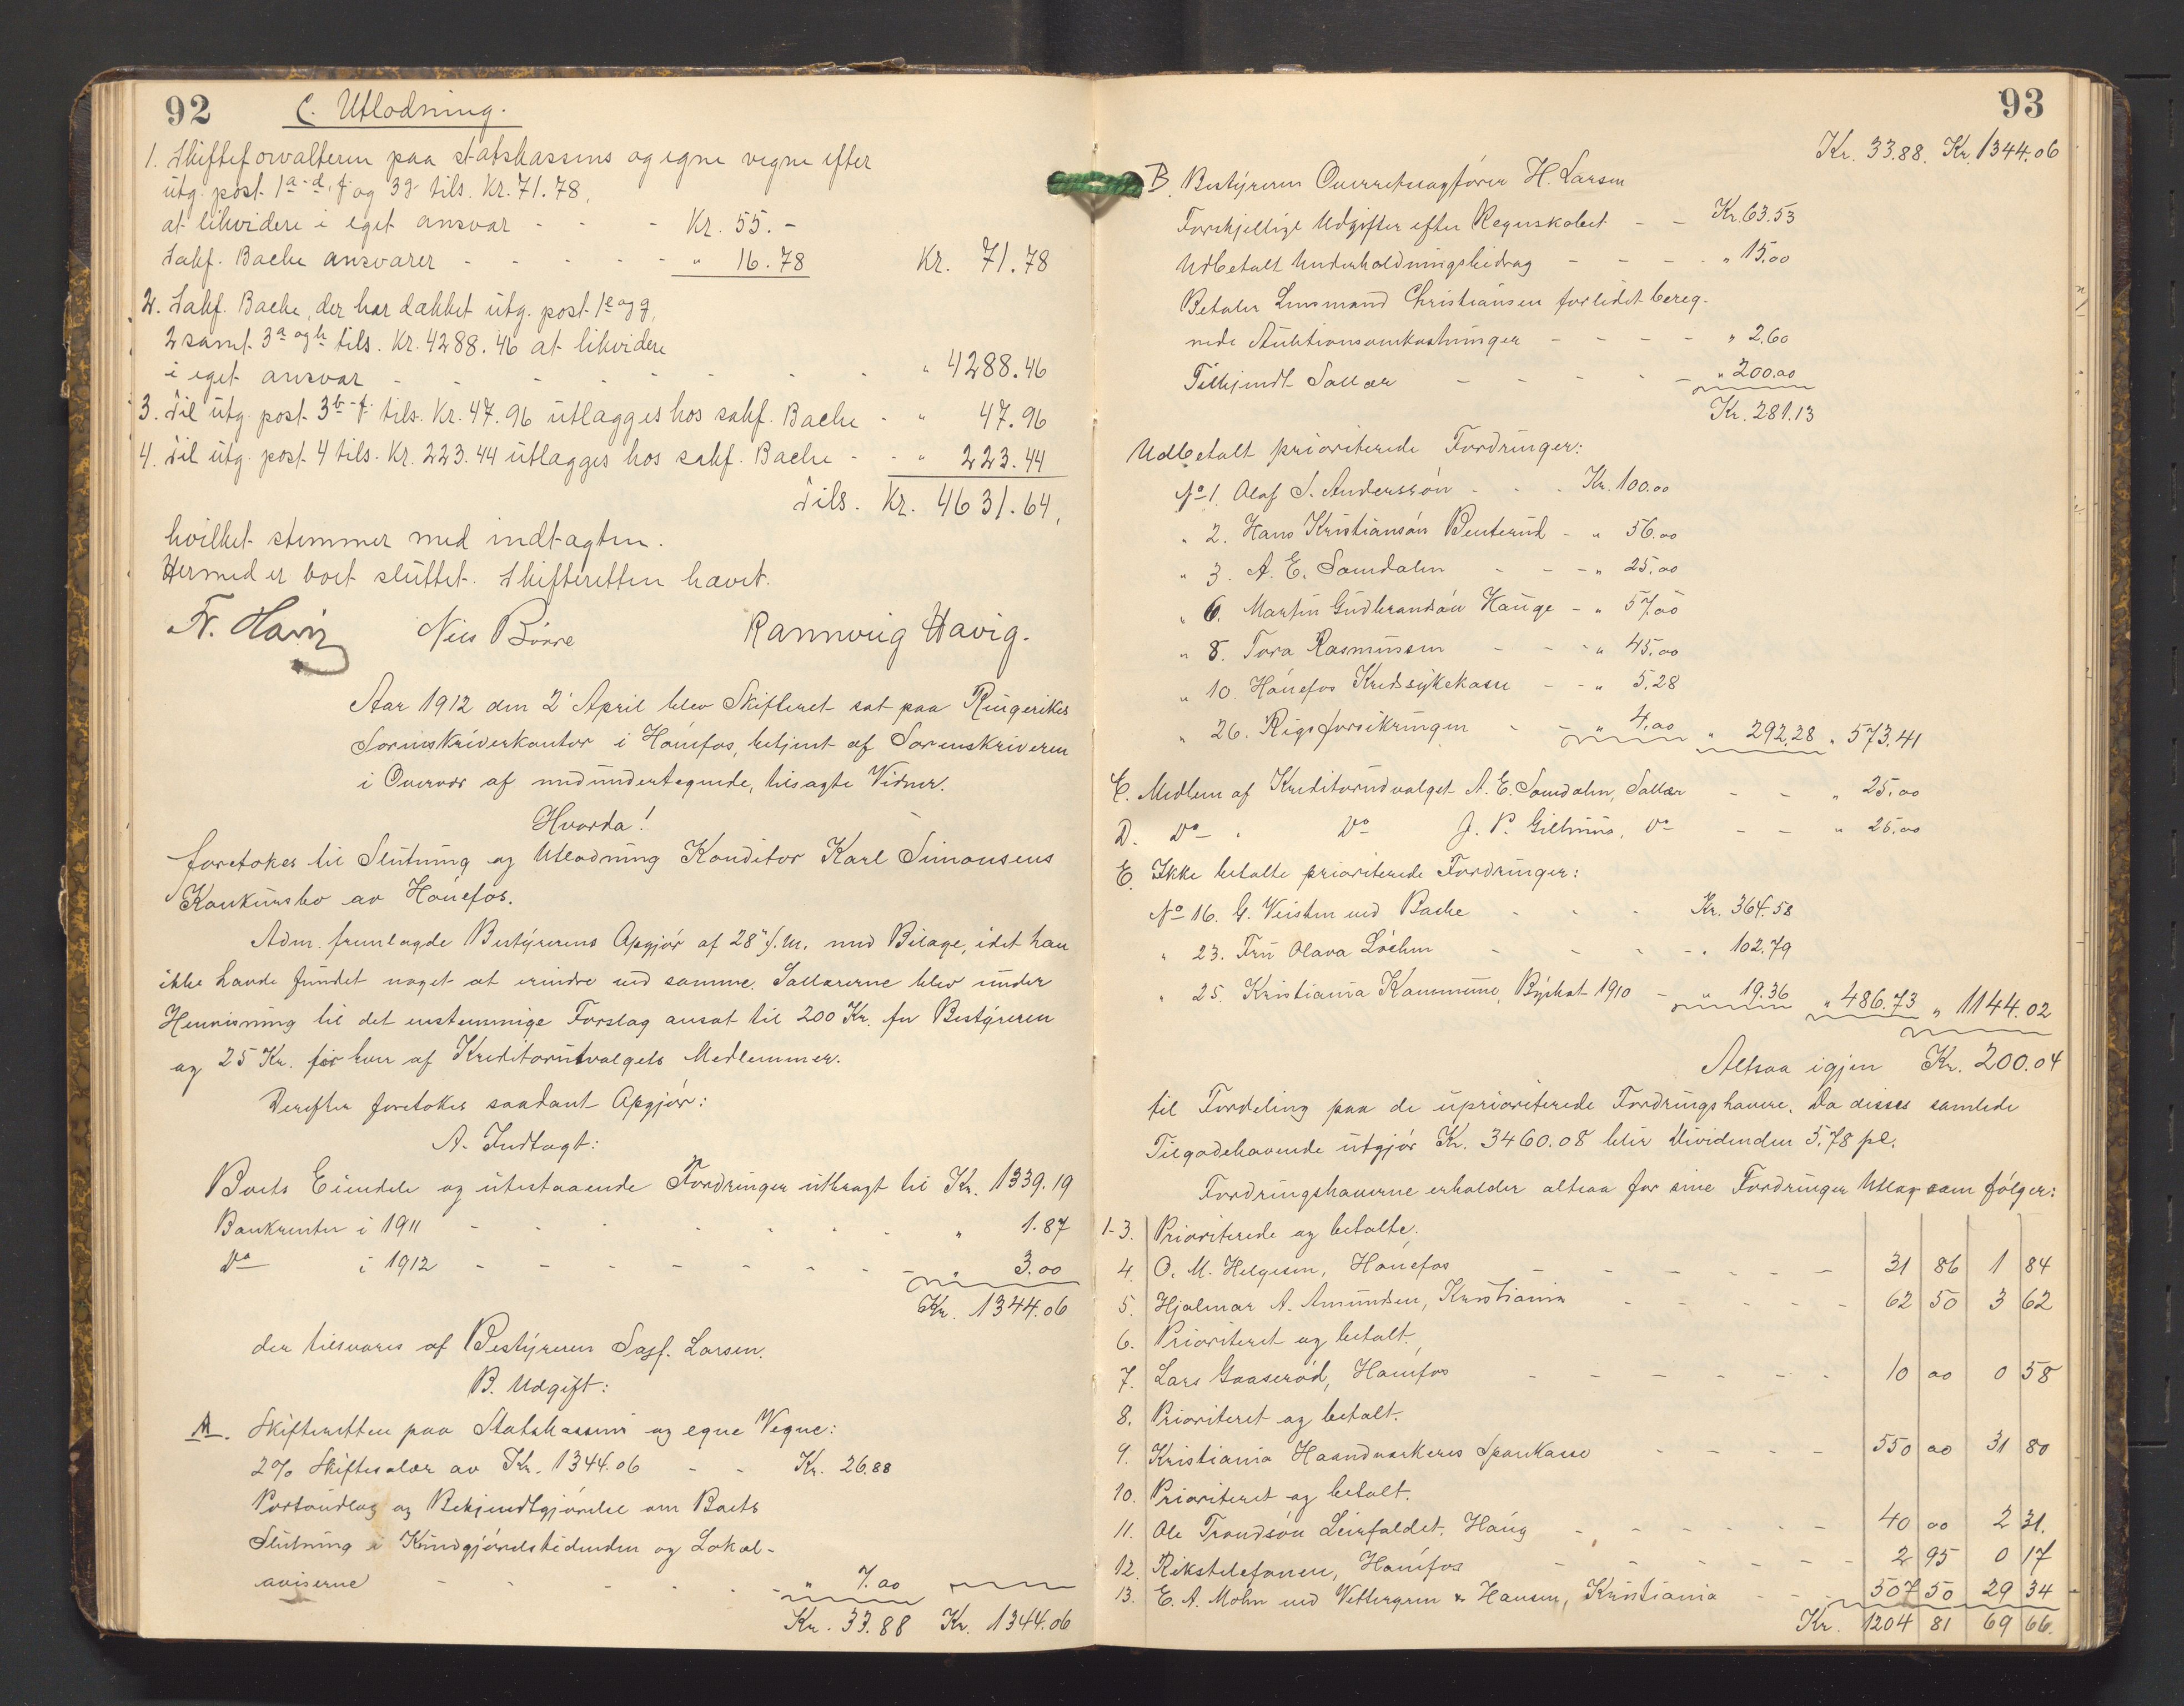 92
C. Utlodning.
1. Skifteforvalteren paa statskassens og egne vegne efter
utg. post 1 a-d, f og 3g tils. Kr. 71.78,
at likvidere i eget ansvar - - - Kr. 55.-
Sakf. Bache ansvarer - - - - - " 16.78 Kr. 71.78
2. Sakf. Bache, der har dækket utg. post 1 e og g,
2 samt 3 a og h tils. Kr. 4288.46 at likvidere
i eget ansvar - - - - - - - " 4288.46
3. Til utg. post 3 b-f tils. Kr. 47.96 utlægges hos sakf. Bache - " 47.96
4. Til utg. post 4 tils. Kr. 223.44 utlægges hos sakf. Bache - - " 223.44
Tils. Kr. 4631.64,
hvilket stemmer med indtægten.
Hermed er boet sluttet. Skifteretten hævet.
Fr. Nils Børre Rannveig Havig.
Aar 1912 den 2' April blev Skifteret sat paa Ringerikes
Sorenskriverkontor i Hønefos, betjent af Sorenskriveren
i Overvær af medundertegnede, tilsagte Vidner.
Hvorda!
foretokes til Slutning og Utlodning Konditor Karl Simonsens
Konkursbo av Hønefos.
Adm. fremlagde Bestyrerens Opgjør af 28" f. M. med Bilage, idet han
ikke havde fundet noget at erindre ved samme. Sallærerne blev under
Henvisning til det enstemmige Forslag ansat til 200 Kr. for Bestyreren
og 25 Kr. for hver af Kreditorutvalgets Medlemmer.
Derefter foretokes saadant Opgjør:
A. Indtægt:
Boets Eiendele og utestaaende Fordringer utbragt til Kr. 1339.19
Bankrenter i 1911 - - - - - - - " 1.87
Do i 1912 - - - - - - - - " 3.00
Kr. 1344.06
der tilsvares af Bestyreren Sagf. Larsen.
B. Udgift:
A. Skifteretten paa Statskassens og egne Vegne:
2% Skiftesalær av Kr. 1344.06 - - Kr. 26.88
Portoutlæg og Bekjendtgjørelse om Boets
Slutning i Kundgjørelsestidenden og Lokal-
aviserne - - - - - " 7.00
Kr. 33.88 Kr. 1344.06
93
Kr. 33.88. Kr. 1344.06
B. Bestyreren Overretssagfører H. Larsen
Forskjellige Udgifter efter Regnskabet - - Kr. 63.53
Udbetalt Underholdningsbidrag - - - - " 15.00
Betaler Lensmand Christiansen forlidet bereg-
nede Auktionsomkostninger - - - - " 2.60
Tilkjendt Sallær - - - - - " 200.00
Kr. 281.13
Udbetalt prioriterede Fordringer:
No 1. Olaf S. Anderssøn - - - Kr. 100.00
" 2. Hans Kristiansøn Benterud - " 56.00
" 3. A. E. Somdalen - - - " 25.00
" 6. Martin Gudbrandsøn Hauge - " 57.00
" 8. Tora Rasmussen - - - " 45.00
" 10. Hønefos Kredssykekasse - - " 5.28
" 26. Rigsforsikringen - - " 4.00 " 292.28 " 573.41
C. Medlem af Kreditorudvalget A. E. Somdalen, Sallær - - " 25.00
D. Do - " Do J. P. Gilhuus, Do - - " 25.00
E. Ikke betalte prioriterede Fordringer:
No 16. G. Weisten ved Bache - - - Kr. 364.58
" 23. Fru Olava Løchen - - - - " 102.79
" 25. Kristiania Kommune, Byskat 1910 - " 19.36 " 486.73 " 1144.02
Altsaa igjen Kr. 200.04
til Fordeling paa de uprioriterede Fordringshavere. Da disses samlede
Tilgodehavende utgjør Kr. 3460.08 blir Dividenden 5.78 pC.
Fordringshaverne erholder altsaa for sine Fordringer Utlæg som følger:
1-3. Prioriterede og betalte.
4. O. M. Helgesen, Hønefos - - - - - - 31 86 1 84
5. Hjalmar A. Amundsen, Kristiania - - - - - 62 50 3 62
6. Prioriteret og betalt.
7. Lars Gaaserød, Hønefos - - - - - - 10 00 0 58
8. Prioriteret og betalt.
9. Kristiania Haandværkeres Sparekasse - - - - 550 00 31 80
10. Prioriteret og betalt.
11. Ole Trondsøn Leirfaldet, Haug - - - - - 40 00 2 31.
12. Rikstelefonen, Hønefos - - - - - - 2 95 0 17
13. E. A. Mohn ved Wettergren & Hansen, Kristiania - - 507 50 29 34
Kr. 1204 81 69 66.